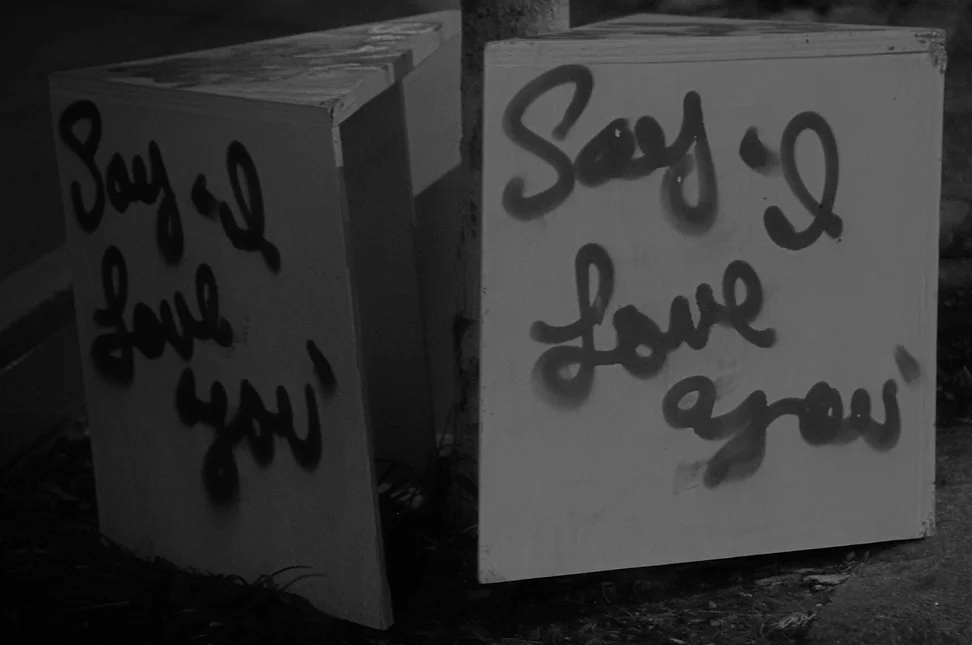 Say 'I
Love
you'
Say 'I
Love
you'